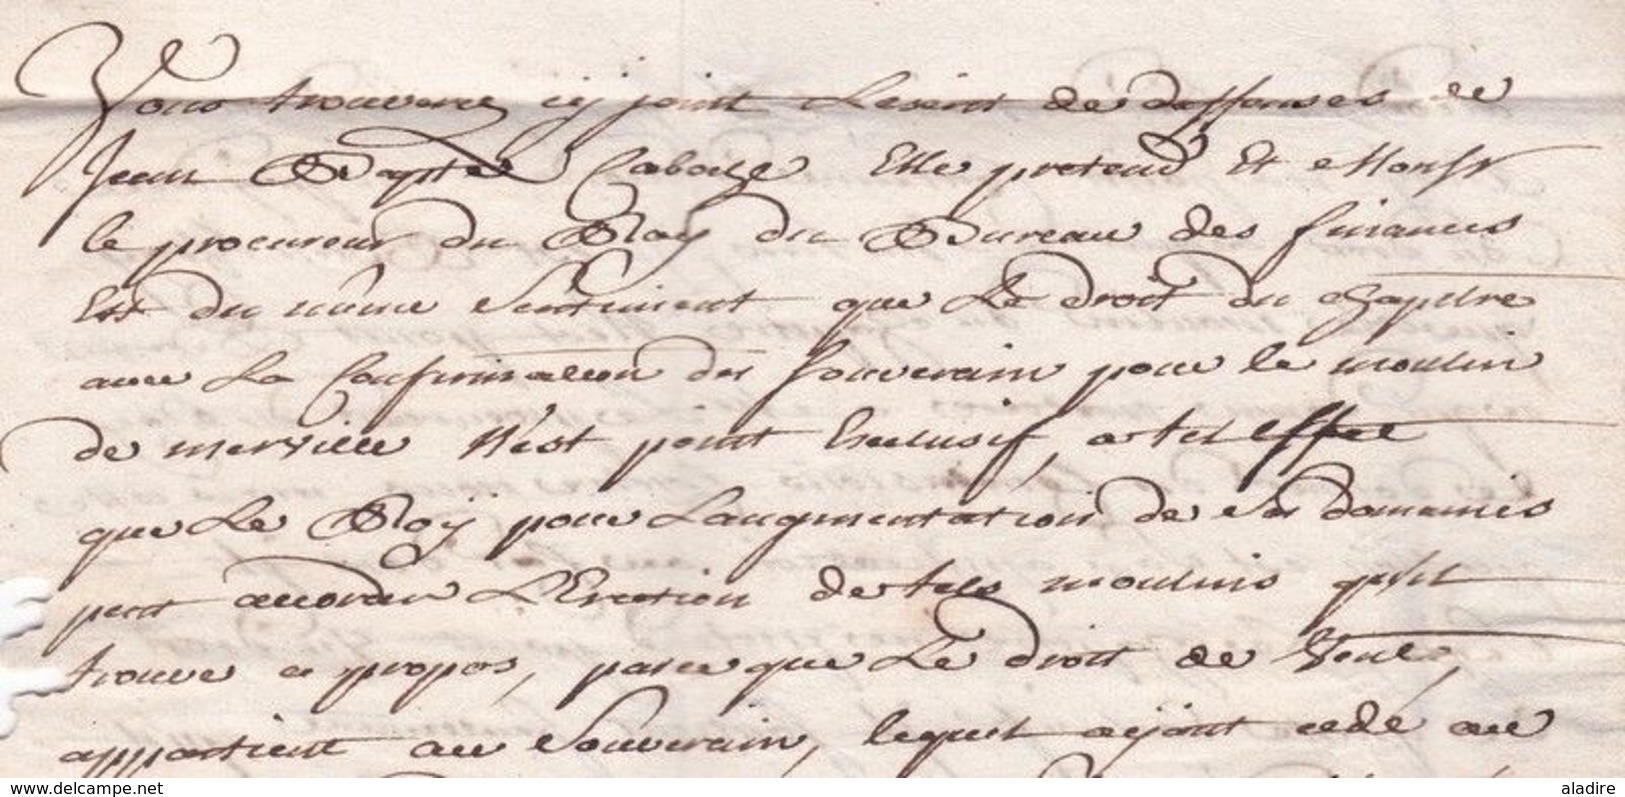 Vous trouverez cy joint L'escrit de deffenses de
Jean Baptte Caboche Elle pretend Et Monsr
le procureur du Roy du Bureau des finances
Est du même Sentiment que Le droit du chapitre
avec La Confirmation du Souverain pour le moulin
de merville N'est point Exclusif, a tel Effet
que Le Roÿ pour L'augmentation de Ses domaines
peut accorder L'Erection de tels moulins qu'il
trouve a propos, parce que Le droit de Vent,
appartient au Souverain, lequel aÿant cedé au
www.delcampe.net
aladire